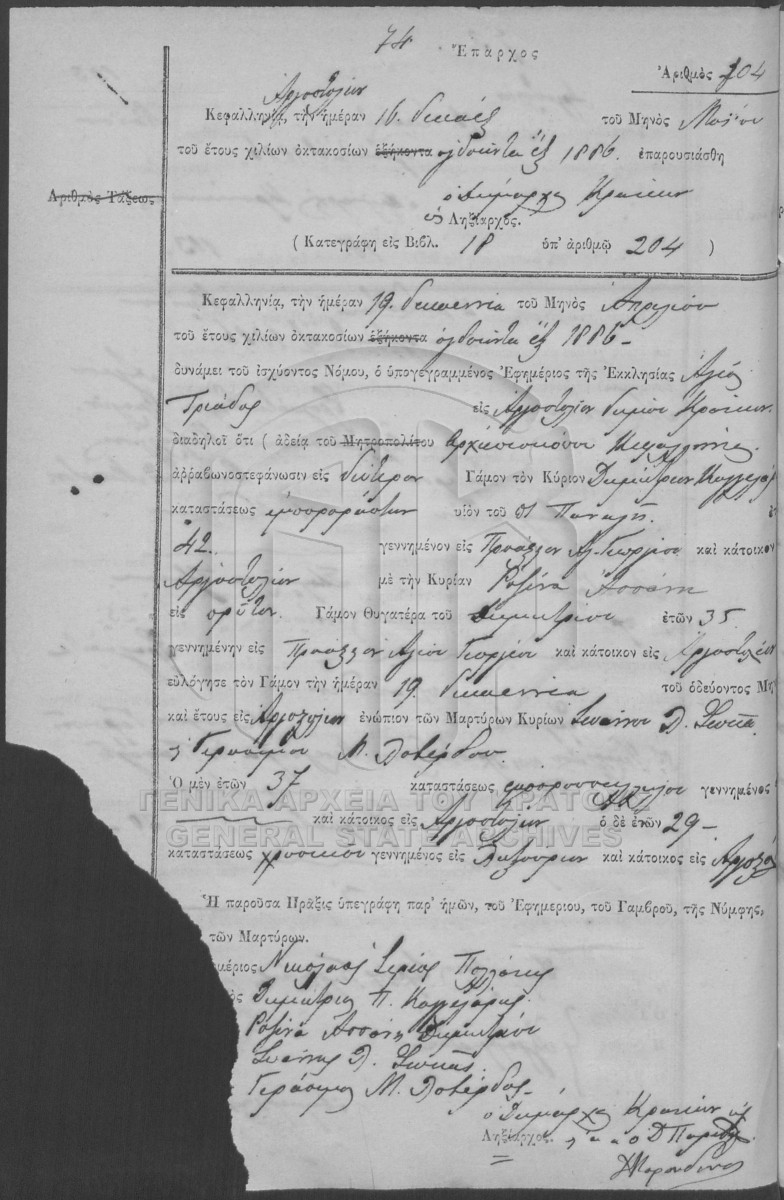 74
Ἔπαρχος
Ἀριθμὸς 204
Ἀργοστόλιον
Κεφαλληνίᾳ, τὴν ἡμέραν 16. δεκαέξ τοῦ Μηνὸς Μαΐου
τοῦ ἔτους χιλίων ὀκτακοσίων ἑξήκοντα ὀγδοῆντα ἕξ 1886. ἐπαρουσιάσθη
Ἀριθμὸς Τάξεως
ὁ Δήμαρχος Κρανίων
ὡς Ληξίαρχος.
( Κατεγράφη εἰς Βιβλ. 18 ὑπ' ἀριθμῷ 204 )
Κεφαλληνίᾳ, τὴν ἡμέραν 19. δεκαεννέα τοῦ Μηνὸς Ἀπριλίου
τοῦ ἔτους χιλίων ὀκτακοσίων ἑξήκοντα ὀγδοῆντα ἕξ 1886 –
δυνάμει τοῦ ἰσχύοντος Νόμου, ὁ ὑπογεγραμμένος Ἐφημέριος τῆς Ἐκκλησίας Ἁγίας
Τριάδος εἰς Ἀργοστόλιον δήμου Κρανίων
διαδηλοῖ ὅτι ( ἀδείᾳ τοῦ Μητροπολίτου ἀρχιεπισκόπου Κεφαλληνίας
ἀῤῥαβωνοστεφάνωσιν εἰς δεύτερον Γάμον τὸν Κύριον Δημήτριον
καταστάσεως υἱὸν τοῦ Παναγῆ
42. γεννημένον εἰς Γεωργίου καὶ κάτοικον
Ἀργοστόλιον μὲ τὴν Κυρίαν Ροζίνα
εἰς πρῶτον. Γάμον Θυγατέρα τοῦ Δημητρίου ἐτῶν 35
γεννημένην εἰς Ἁγίου Γεωργίου καὶ κάτοικον εἰς Ἀργοστόλιον
εὐλόγησε τὸν Γάμον τὴν ἡμέραν 19. δεκαεννέα τοῦ ὁδεύοντος Μη
καὶ ἔτους εἰς Ἀργοστόλιον ἐνώπιον τῶν Μαρτύρων Κυρίων Ἰωάννου Λ.
Γερασίμου Μ. Λοβέρδου.
Ὁ μὲν ἐτῶν 37 καταστάσεως γεννημένος
ΓΕΝΙΚΑ ΑΡΧΕΙΑ ΤΟΥ ΚΡΑΤΟΥΣ
καὶ κάτοικος εἰς Ἀργοστόλιον ὁ δὲ ἐτῶν 29 –
GENERAL STATE ARCHIVES
καταστάσεως γεννημένος εἰς Ληξούριον καὶ κάτοικος εἰς
Ἡ παροῦσα Πρᾶξις ὑπεγράφη παρ' ἡμῶν, τοῦ Ἐφημερίου, τοῦ Γαμβροῦ, τῆς Νύμφης,
τῶν Μαρτύρων.
μέριος Νικόλαος Ἱερεὺς
Δημήτριος Π.
Ροζίνα Δημητρίου
Ἰωάννης Λ.
Γεράσιμος Μ. Λοβέρδος –
ὁ Δήμαρχος Κρανίων ὡς
Ληξίαρχος.